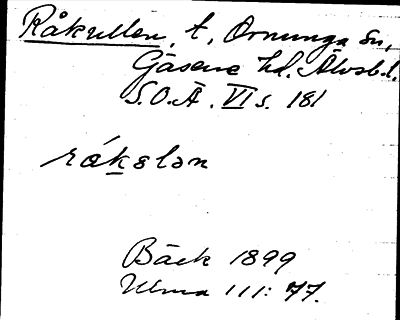 Råkullen, t, Ornunga sn,
Gäsene hd. Älvsb. l.
S.O.Ä. VI s. 181
råkələn
Bäck 1899
Ulma 111: 77.